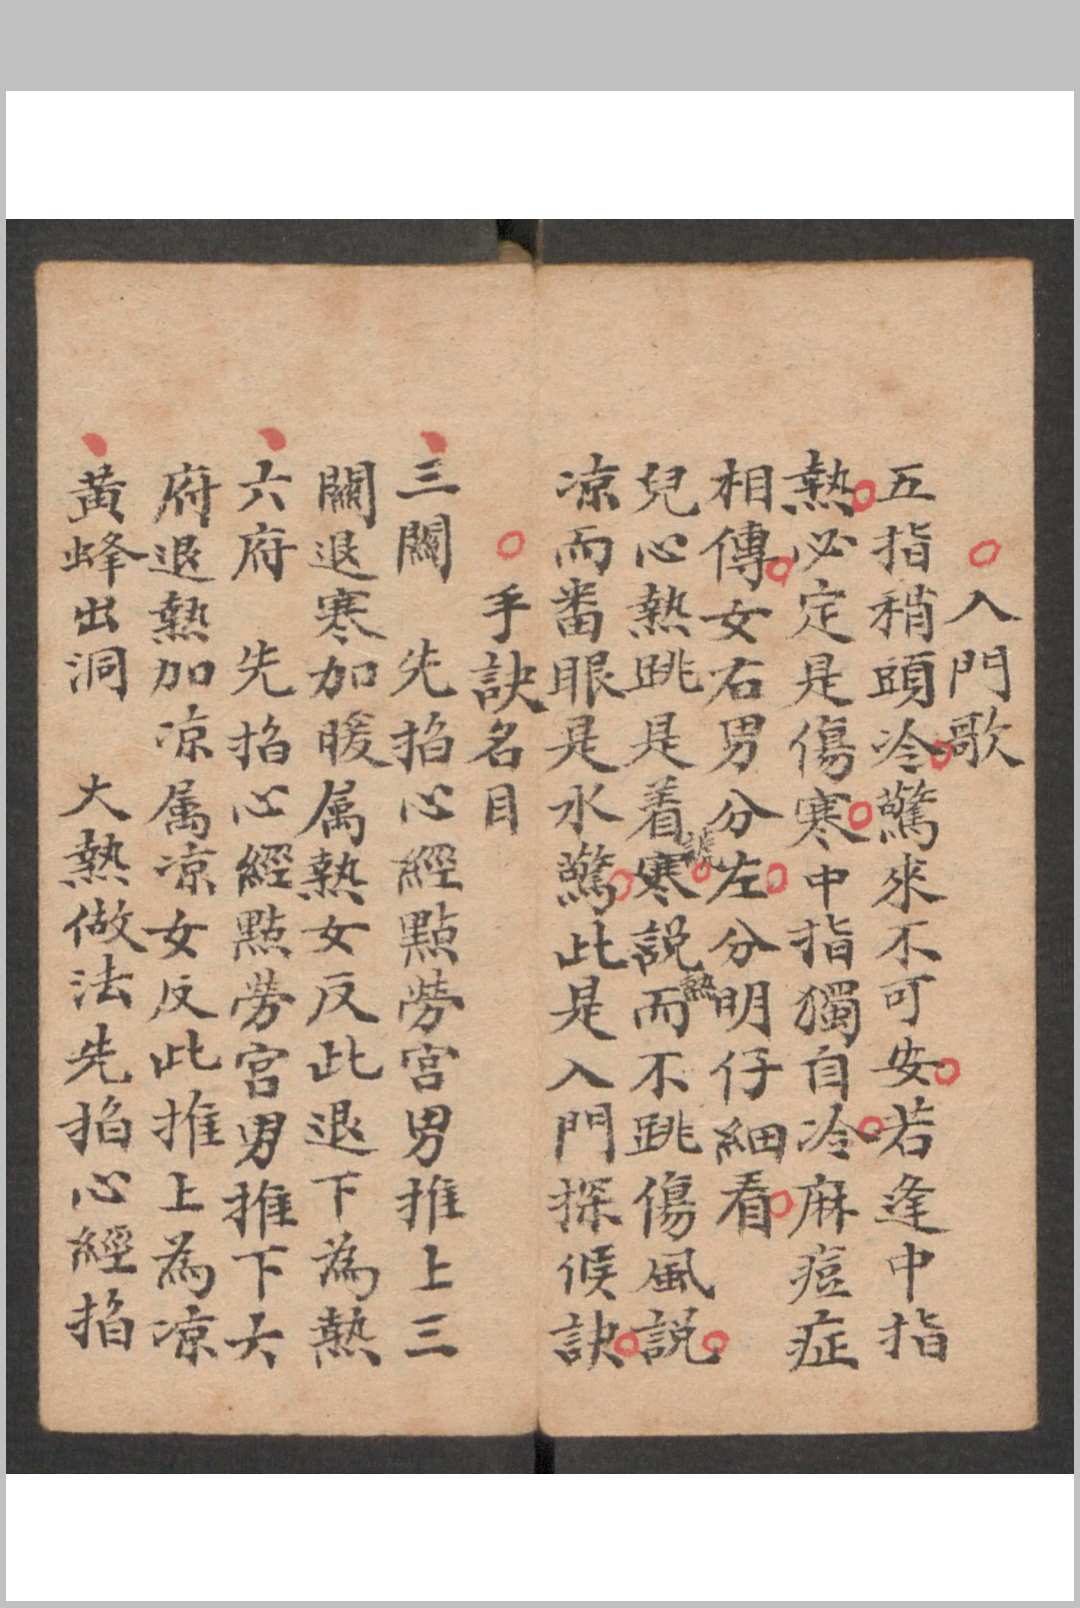 入門歌
五指稍頭冷驚來不可安若逢中指
熱必定是傷寒中指獨自冷麻痘症
相傳女右男分左分明仔細看
兒心熱跳是着寒說而不跳傷風說
號
熱
凉而番眼是水驚此是入門探候訣
手訣名目
三關 先掐心經點勞宮男推上三
關退寒加暖属熱女反此退下為熱
六府 先掐心經點勞宮男推下六
府退熱加凉属凉女反此推上為凉
黃蜂出洞 大熱做法先掐心經掐